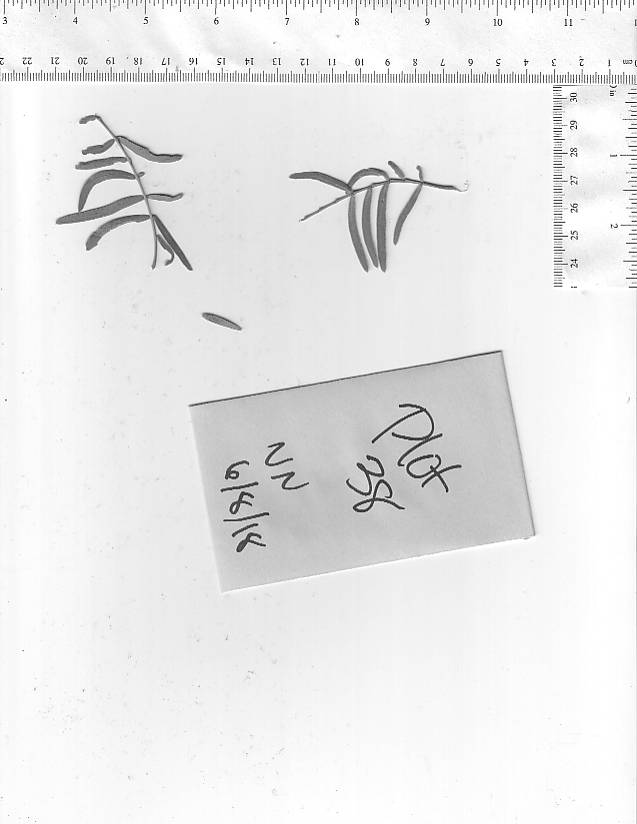 3 4 5 6 7 8 9 10 11
22 21 20 19 18 17 16 15 14 13 12 11 10 9 8 7 6 5 4 3 2 1 cm
in
30
29
28 1
27
26 2
25
24
Plot
38
NN
6/8/18